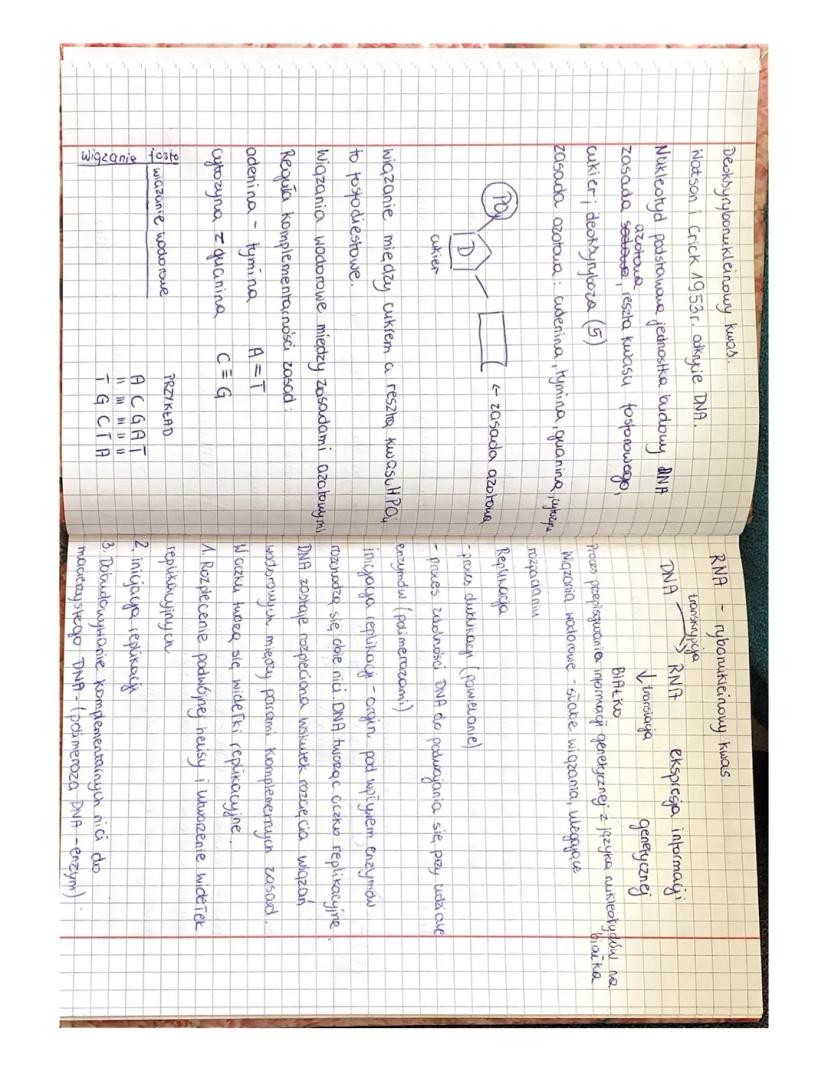 Deoksyrybonukleinowy kwas.
Watson i Crick 1953r. odkrycie DNA.
Nukleotyd podstawowa jednostka budowy DNA
azotowa
zasada, reszta kwasu fosforowego,
cukier; deoksyryboza (5)
zasada azotowa: adenina, tymina, guanina, cytozyna
PO4
D
cukier
← zasada azotowa
wiązanie między cukrem a resztą kwasu HPO4
to fosfodiestowe.
Wiązania wodorowe między zasadami azotowymi
Reguła komplementarności zasad:
adenina - tymina A=T
cytozyna z guaniną C≡G
fosfo wiązanie wodorowe
wiązanie
PRZYKŁAD
A C G A T
= ≡ ≡ = =
T G C T A
RNA - rybonukleinowy kwas
transkrypcja
DNA → RNA ekspresja informacji
↓ translacja genetycznej
BIAŁKO
Proces przepisywania informacji genetycznej z języka nukleotydów na
białka
Wiązania wodorowe - słabe wiązania, ulegające
rozpadaniu
Replikacja
- proces dublikacji (powielanie)
- proces zdolności DNA do podwajania się przy udziale
enzymów (polimerazami)
inicjacja replikacji - orgin. pod wpływem enzymów
rozchodzą się obie nici DNA tworząc oczko replikacyjne.
DNA zostaje rozpleciona wskutek rozcięcia wiązań
wodorowych między parami komplementnych zasad.
W oczku tworzą się widełki replikacyjne.
1. Rozplecenie podwójnej helisy i utworzenie widełek
replikacyjnych
2. Inicjacja replikacji
3. Dobudowywanie komplementarnych nici do
macierzystego DNA - (polimeraza DNA - enzym);